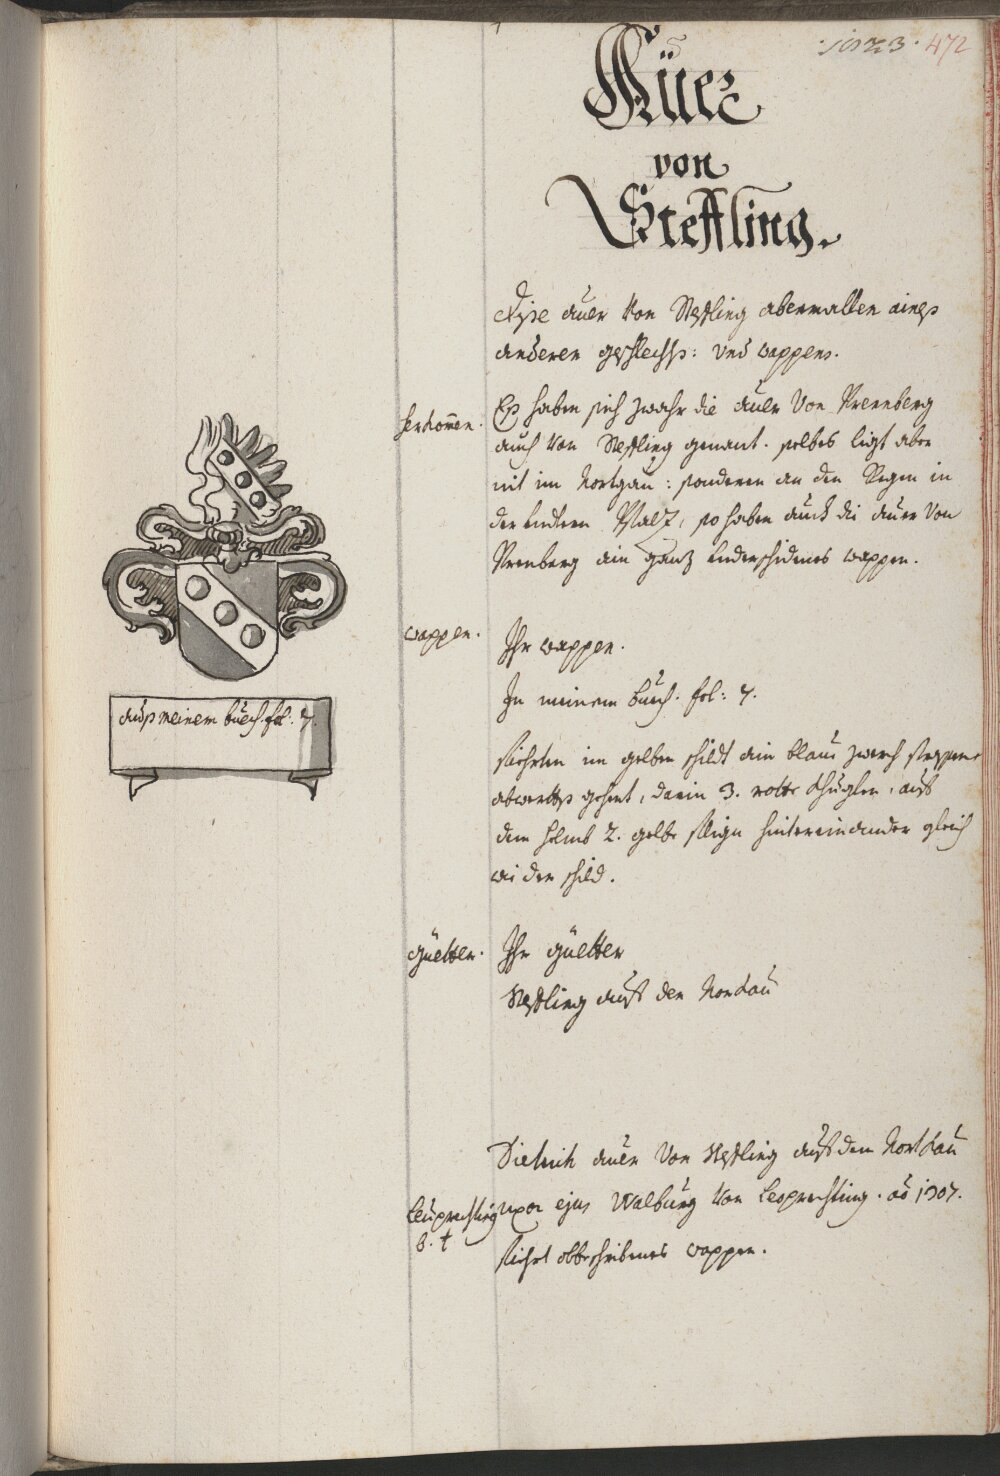 .1023. 472
Auer
von
Steffling.
Dise auer von Steffling abermallen aines
anderen geschlechts: und wappens.
herkomen.
Es haben sich zwahr die auer von Prennberg
auch von Steffling genant. selbes ligt aber
nit im Nortgau: sonderen an den Regen in
der undern Pfalz, so haben auch die auer von
Prenberg ain ganz underschidenes wappen.
wappen.
Ihr wappen.
In meinem buech. fol: 7.
fiehrten im gelben schildt ain blaue zwerch strassen
abwertts gehent, darin 3. rotte khuglen, auf
dem helmb 2. gelbe flign hintereinander gleich
wie der schild.
auss meinem buech. fol. 7.
güetter.
Ihr güetter
Steffling auf den Norkau
Dietrich auer von Steffling auf dem Nortkau
Leuprechting
uxor ejus Walburg von Leoprechting. ao 1307.
b. t
fiehrt obbeschribenes wappen.